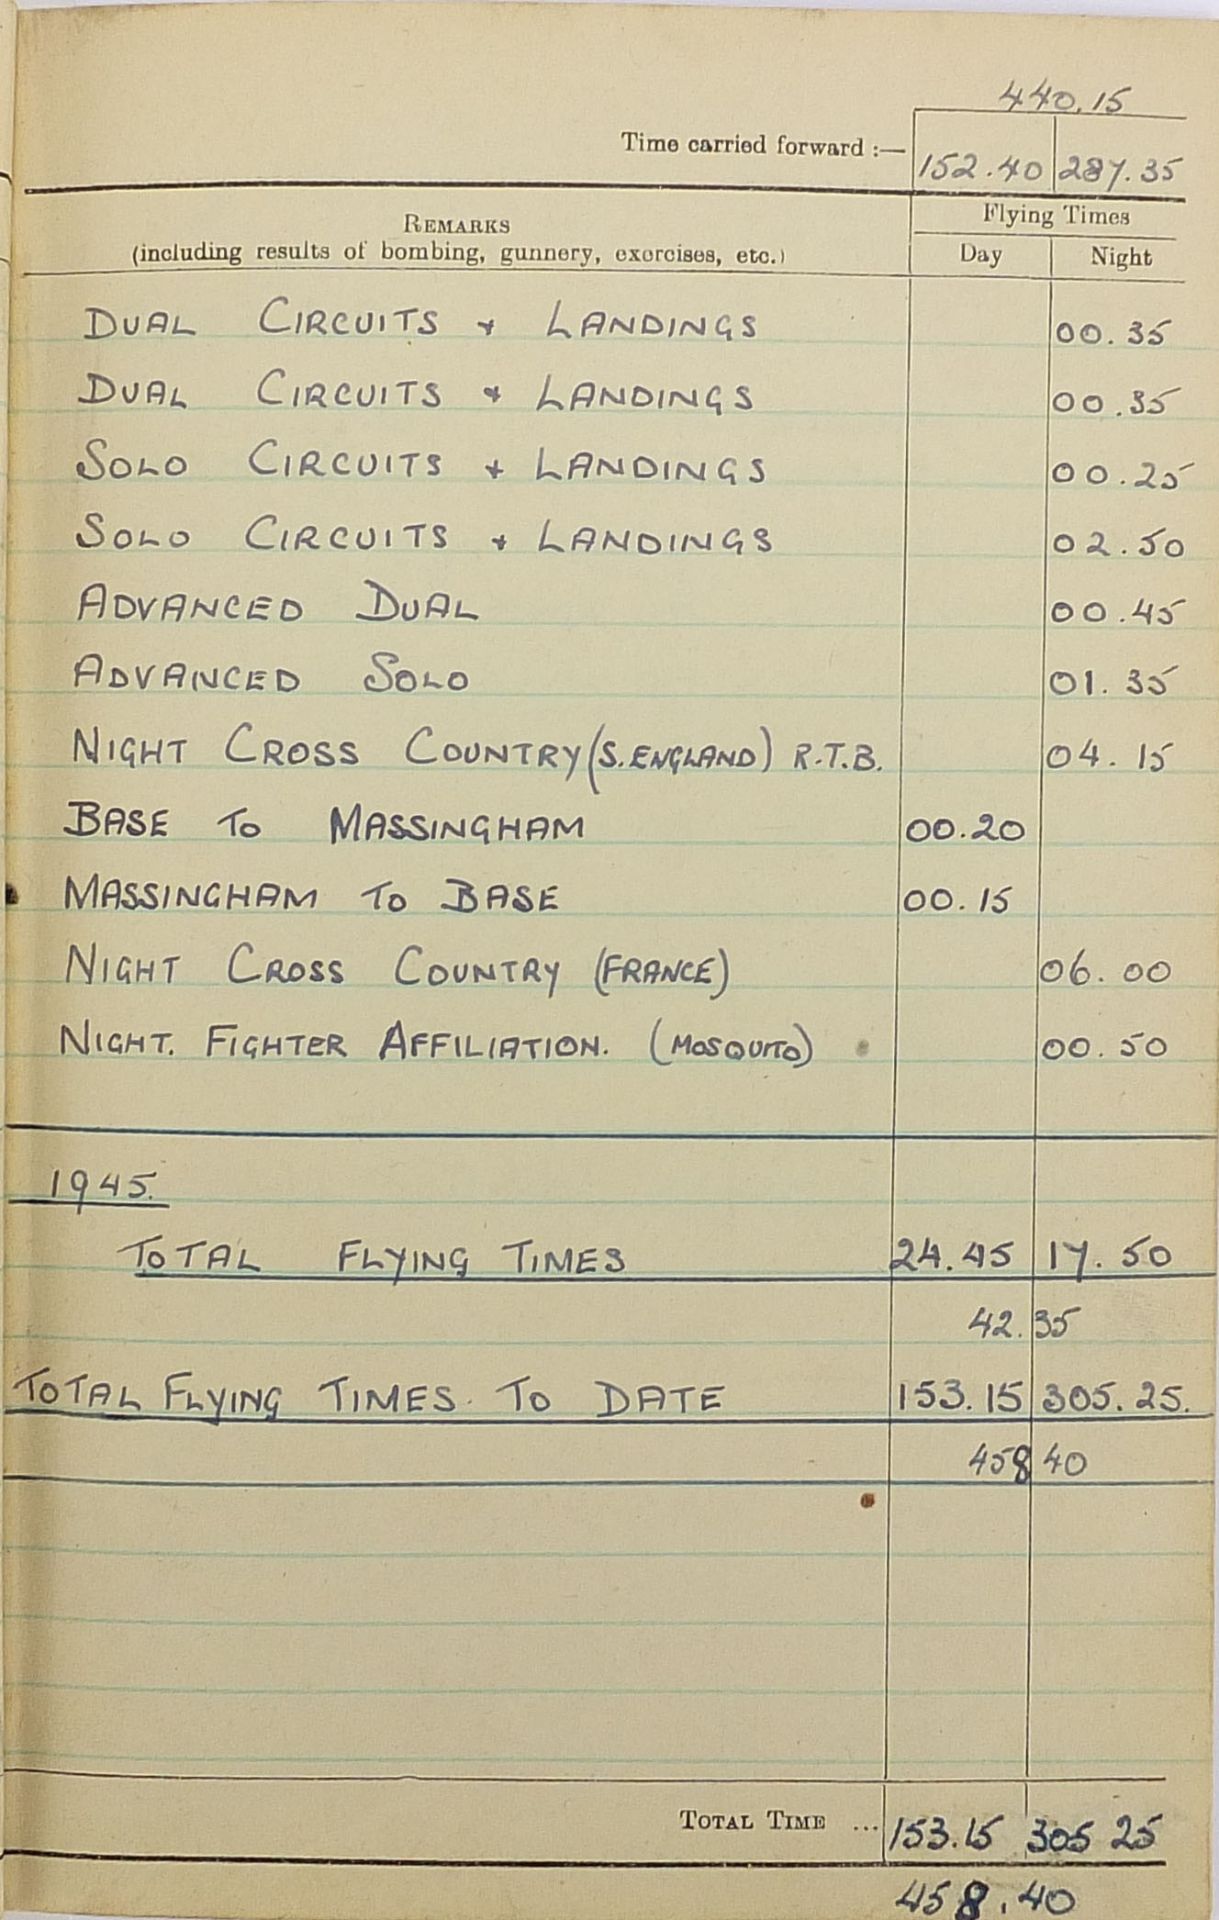 440.15
Time carried forward :— 152.40 287.35
REMARKS
(including results of bombing, gunnery, exercises, etc.)
Flying Times
Day Night
DUAL CIRCUITS + LANDINGS 00.35
DUAL CIRCUITS + LANDINGS 00.35
SOLO CIRCUITS + LANDINGS 00.25
SOLO CIRCUITS + LANDINGS 02.50
ADVANCED DUAL 00.45
ADVANCED SOLO 01.35
NIGHT CROSS COUNTRY (S. ENGLAND) R.T.B. 04.15
BASE TO MASSINGHAM 00.20
MASSINGHAM TO BASE 00.15
NIGHT CROSS COUNTRY (FRANCE) 06.00
NIGHT. FIGHTER AFFILIATION. (MOSQUITO) 00.50
1945.
TOTAL FLYING TIMES 24.45 17.50
42.35
TOTAL FLYING TIMES TO DATE 153.15 305.25.
458 40
TOTAL TIME ... 153.15 305 25
458.40